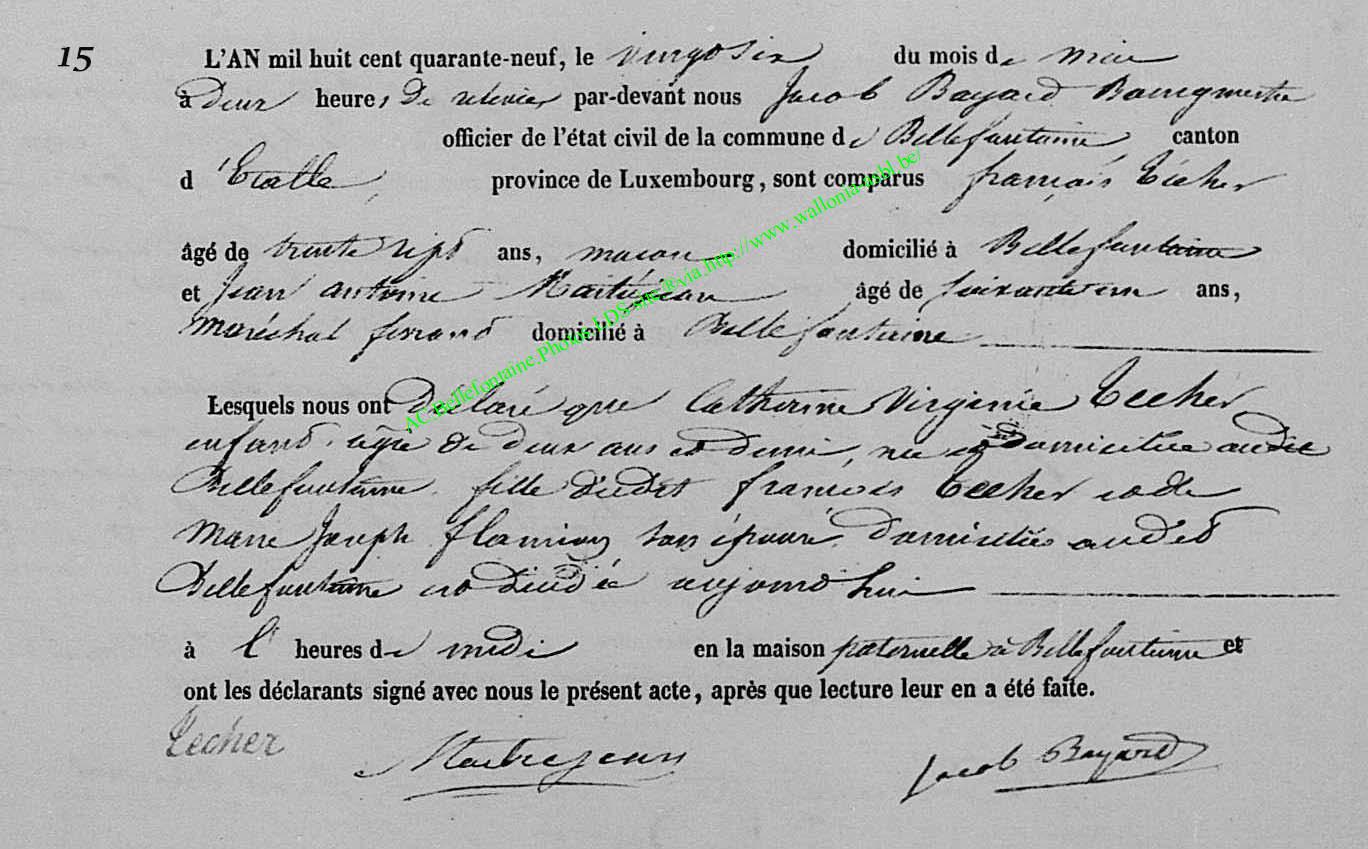 15
L'AN mil huit cent quarante-neuf, le vingt six du mois de mai
à deux heures de relevée par-devant nous Jacob Bayard Bourgmestre
officier de l'état civil de la commune de Bellefontaine canton
d'Etalle, province de Luxembourg, sont comparus françois Techer
âgé de trente sept ans, macon domicilié à Bellefontaine
et Jean antoine Maitrejean âgé de soixante un ans,
maréchal ferrand domicilié à Bellefontaine
Lesquels nous ont déclaré que Catherine Virginie Techer
enfant, agée de deux ans et demi, née et domiciliée audit
Bellefontaine, fille dudit francois Techer et de
Marie Joseph flamion, son épouse, domiciliés audit
Bellefontaine est décédée aujourd'hui
à l' heures de midi en la maison paternelle à Bellefontaine et
ont les déclarants signé avec nous le présent acte, après que lecture leur en a été faite.
Techer Maitrejean Jacob Bayard
AC Bellefontaine.Photos LDS site ®via http://www.wallonia-asbl.be/